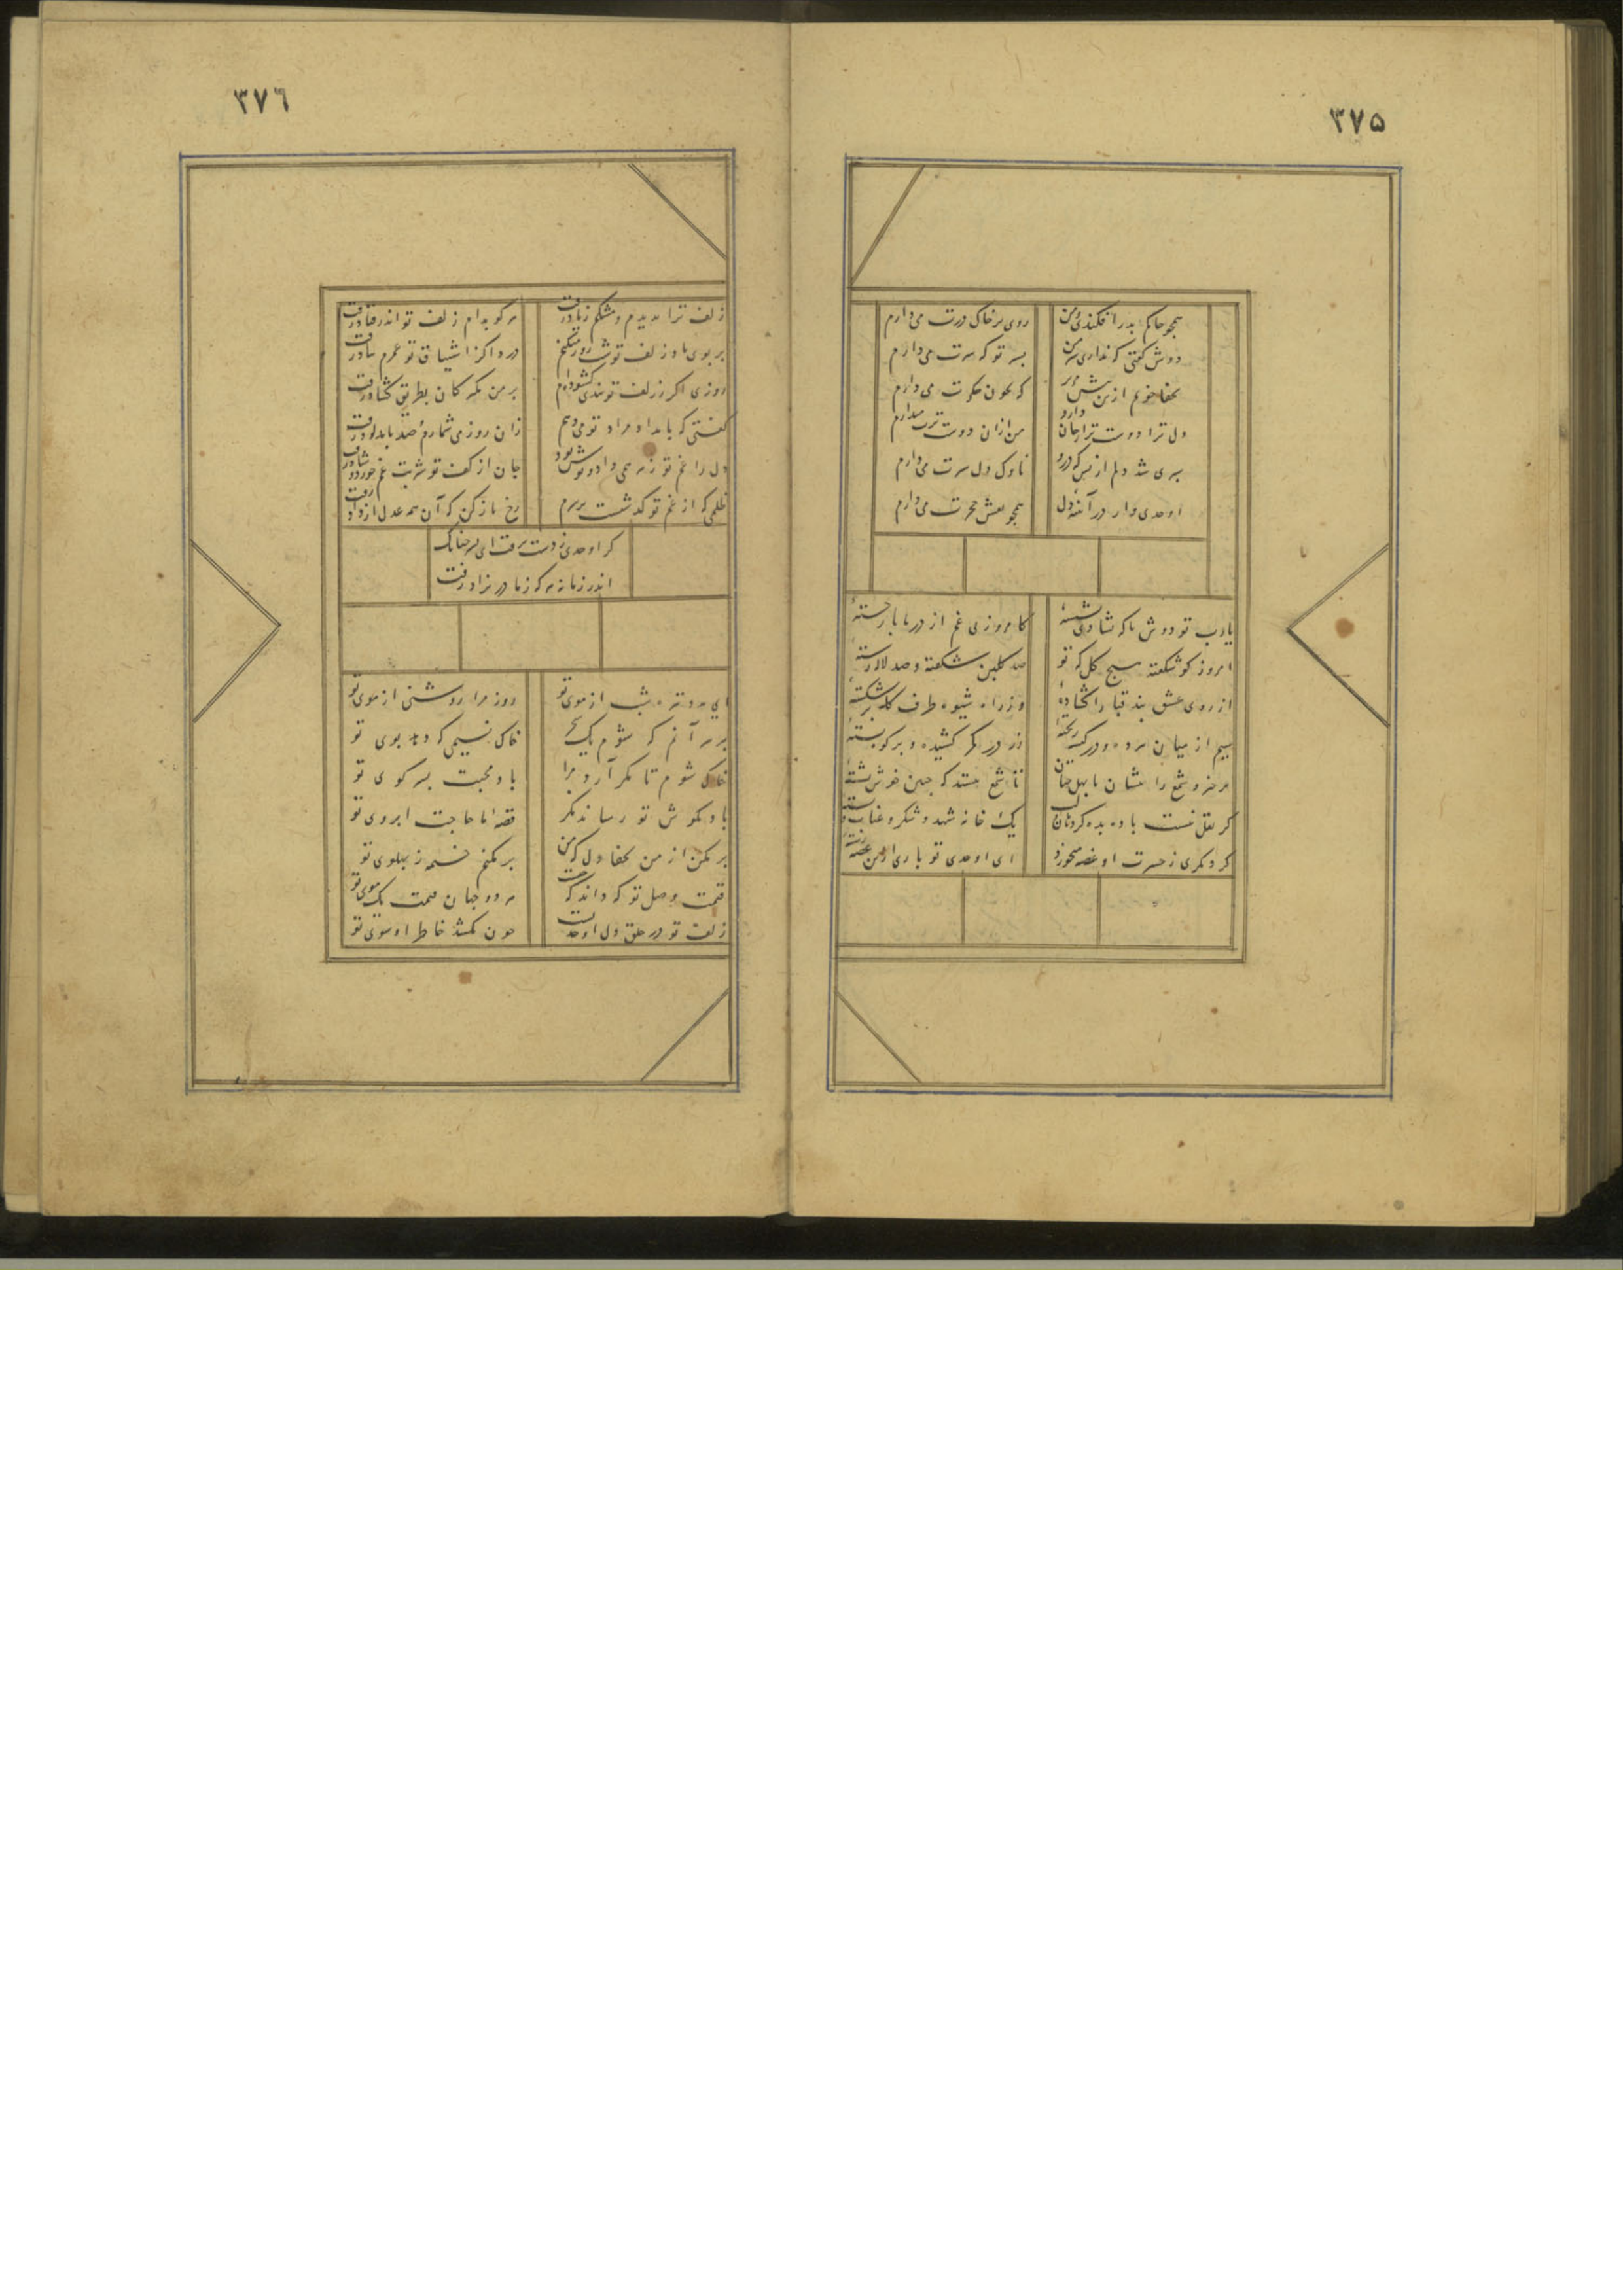 ۳۷۵
همچو خاکم بدر افکندی و من
روی بر خاک درت می‌دارم
دوش گفتی که نداری سر من
بسر تو که سرت می‌دارم
بجفا خونم ازین بیش مخور
که بخون جگرت می‌دارم
دل ترا دوست تر از جان دارد
من از آن دوست ترت میدارم
سپری شد دلم از بس که درو
ناوک دل سپرت می‌دارم
اوحدی وار در آئینه دل
همچو نقش حجرت می‌دارم
یارب تو دوش با که بشادی نشستهٔ
کامروز بی غم از در ما باز جستهٔ
امروز کو شکفته هیچ گل که تو
صد گلبن شکفته و صد لاله رستهٔ
از روی عشق بند قبا را گشادهٔ
وز راه شیوه طرف کله برشکستهٔ
سیم از میان برده و در کیسه ریختهٔ
زر در کمر کشیده و بر کوه بستهٔ
برخیز و شمع را بنشان یا بهل چنان
تا شمع بیند که جبین خوش نشستهٔ
گر نقل نیست باده بده کز دهان لب
یک خانه شهد و شکر و عناب و پستهٔ
گر دیگری ز حسرت او غصه میخورد
ای اوحدی تو باری ازین غصه رستهٔ
۳۷۶
زلف ترا بدیدم و مشکم ز یاد رفت
هر کو بدام زلف تو اندر فتاد رفت
بر بوی باد زلف تو شب روز میکنم
دردا کز اشتیاق تو عمرم بباد رفت
روزی اگر ز زلف تو بندی گشوده‌ام
بر من مگیر کان بطریق گشاد رفت
گفتی که بامداد مراد تو می‌دهم
زان روز می شمارم و صد بامداد رفت
دل را غم تو زهر همی داد و نوش بود
جان از کف تو شربت غم خورد و شاد رفت
ظلمی که از غم تو گذشت بر سرم
رخ باز کن که آن همه عدل از داد رفت
گر اوحدی ز دست برفت ای پسر چه باک
اندر زمانه هر که ز مادر بزاد رفت
ای مه و تیره شب از موی تو
روز مرا روشنی از موی تو
بر سر آنم که شوم یک سحر
خاک نسیمی که دهد بوی تو
خاک شوم تا مگر آرد مرا
باد محبت بسر کوی تو
باد بگوش تو رساند مگر
قصهٔ ما حاجت ابروی تو
بر مکن از من بجفا دل که من
بر نکنم خیمه ز پهلوی تو
قیمت وصل تو که داند که چیست
هر دو جهان قیمت یک موی تو
زلف تو در حلق دل اوحدیست
چون نکشد خاطر او سوی تو